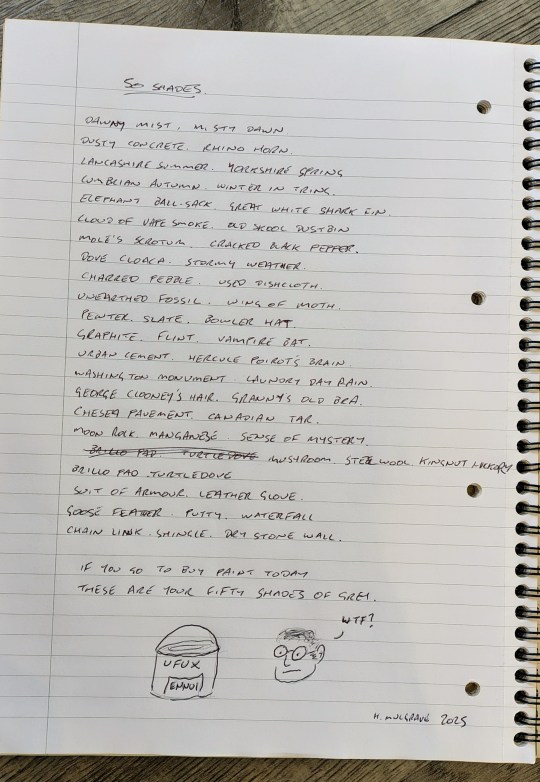 50 SHADES.
DAWNY MIST. MISTY DAWN
DUSTY CONCRETE. RHINO HORN.
LANCASHIRE SUMMER. YORKSHIRE SPRING
CUMBRIAN AUTUMN. WINTER IN TRING.
ELEPHANT BALL-SACK. GREAT WHITE SHARK FIN.
CLOUD OF VAPE SMOKE. OLD SKOOL DUSTBIN
MOLE'S SCROTUM. CRACKED BLACK PEPPER.
DOVE CLOACA. STORMY WEATHER.
CHARRED PEBBLE. USED DISHCLOTH.
UNEARTHED FOSSIL. WING OF MOTH.
PEWTER. SLATE. BOWLER HAT.
GRAPHITE. FLINT. VAMPIRE BAT.
URBAN CEMENT. HERCULE POIROT'S BRAIN.
WASHINGTON MONUMENT. LAUNDRY DAY RAIN.
GEORGE CLOONEY'S HAIR. GRANNY'S OLD BRA.
CHELSEA PAVEMENT. CANADIAN TAR.
MOON ROCK. MANGANESE. SENSE OF MYSTERY.
BRILLO PAD. TURTLEDOVE MUSHROOM. STEEL WOOL. KINGNUT HICKORY
BRILLO PAD. TURTLEDOVE
SUIT OF ARMOUR. LEATHER GLOVE.
GOOSE FEATHER. PUTTY. WATERFALL
CHAIN LINK. SHINGLE. DRY STONE WALL.
IF YOU GO TO BUY PAINT TODAY
THESE ARE YOUR FIFTY SHADES OF GREY.
WTF?
UFUX
ENNUI
H. MULGRAVE 2025